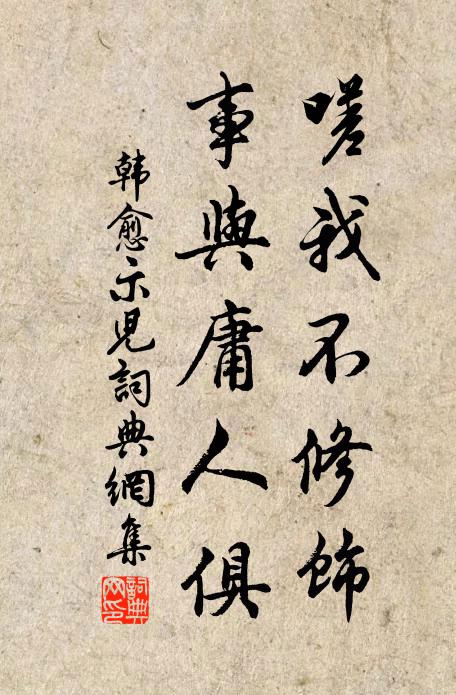 嗟我不修飾
事與庸人俱
韓愈示児詞典網集
詞典网印